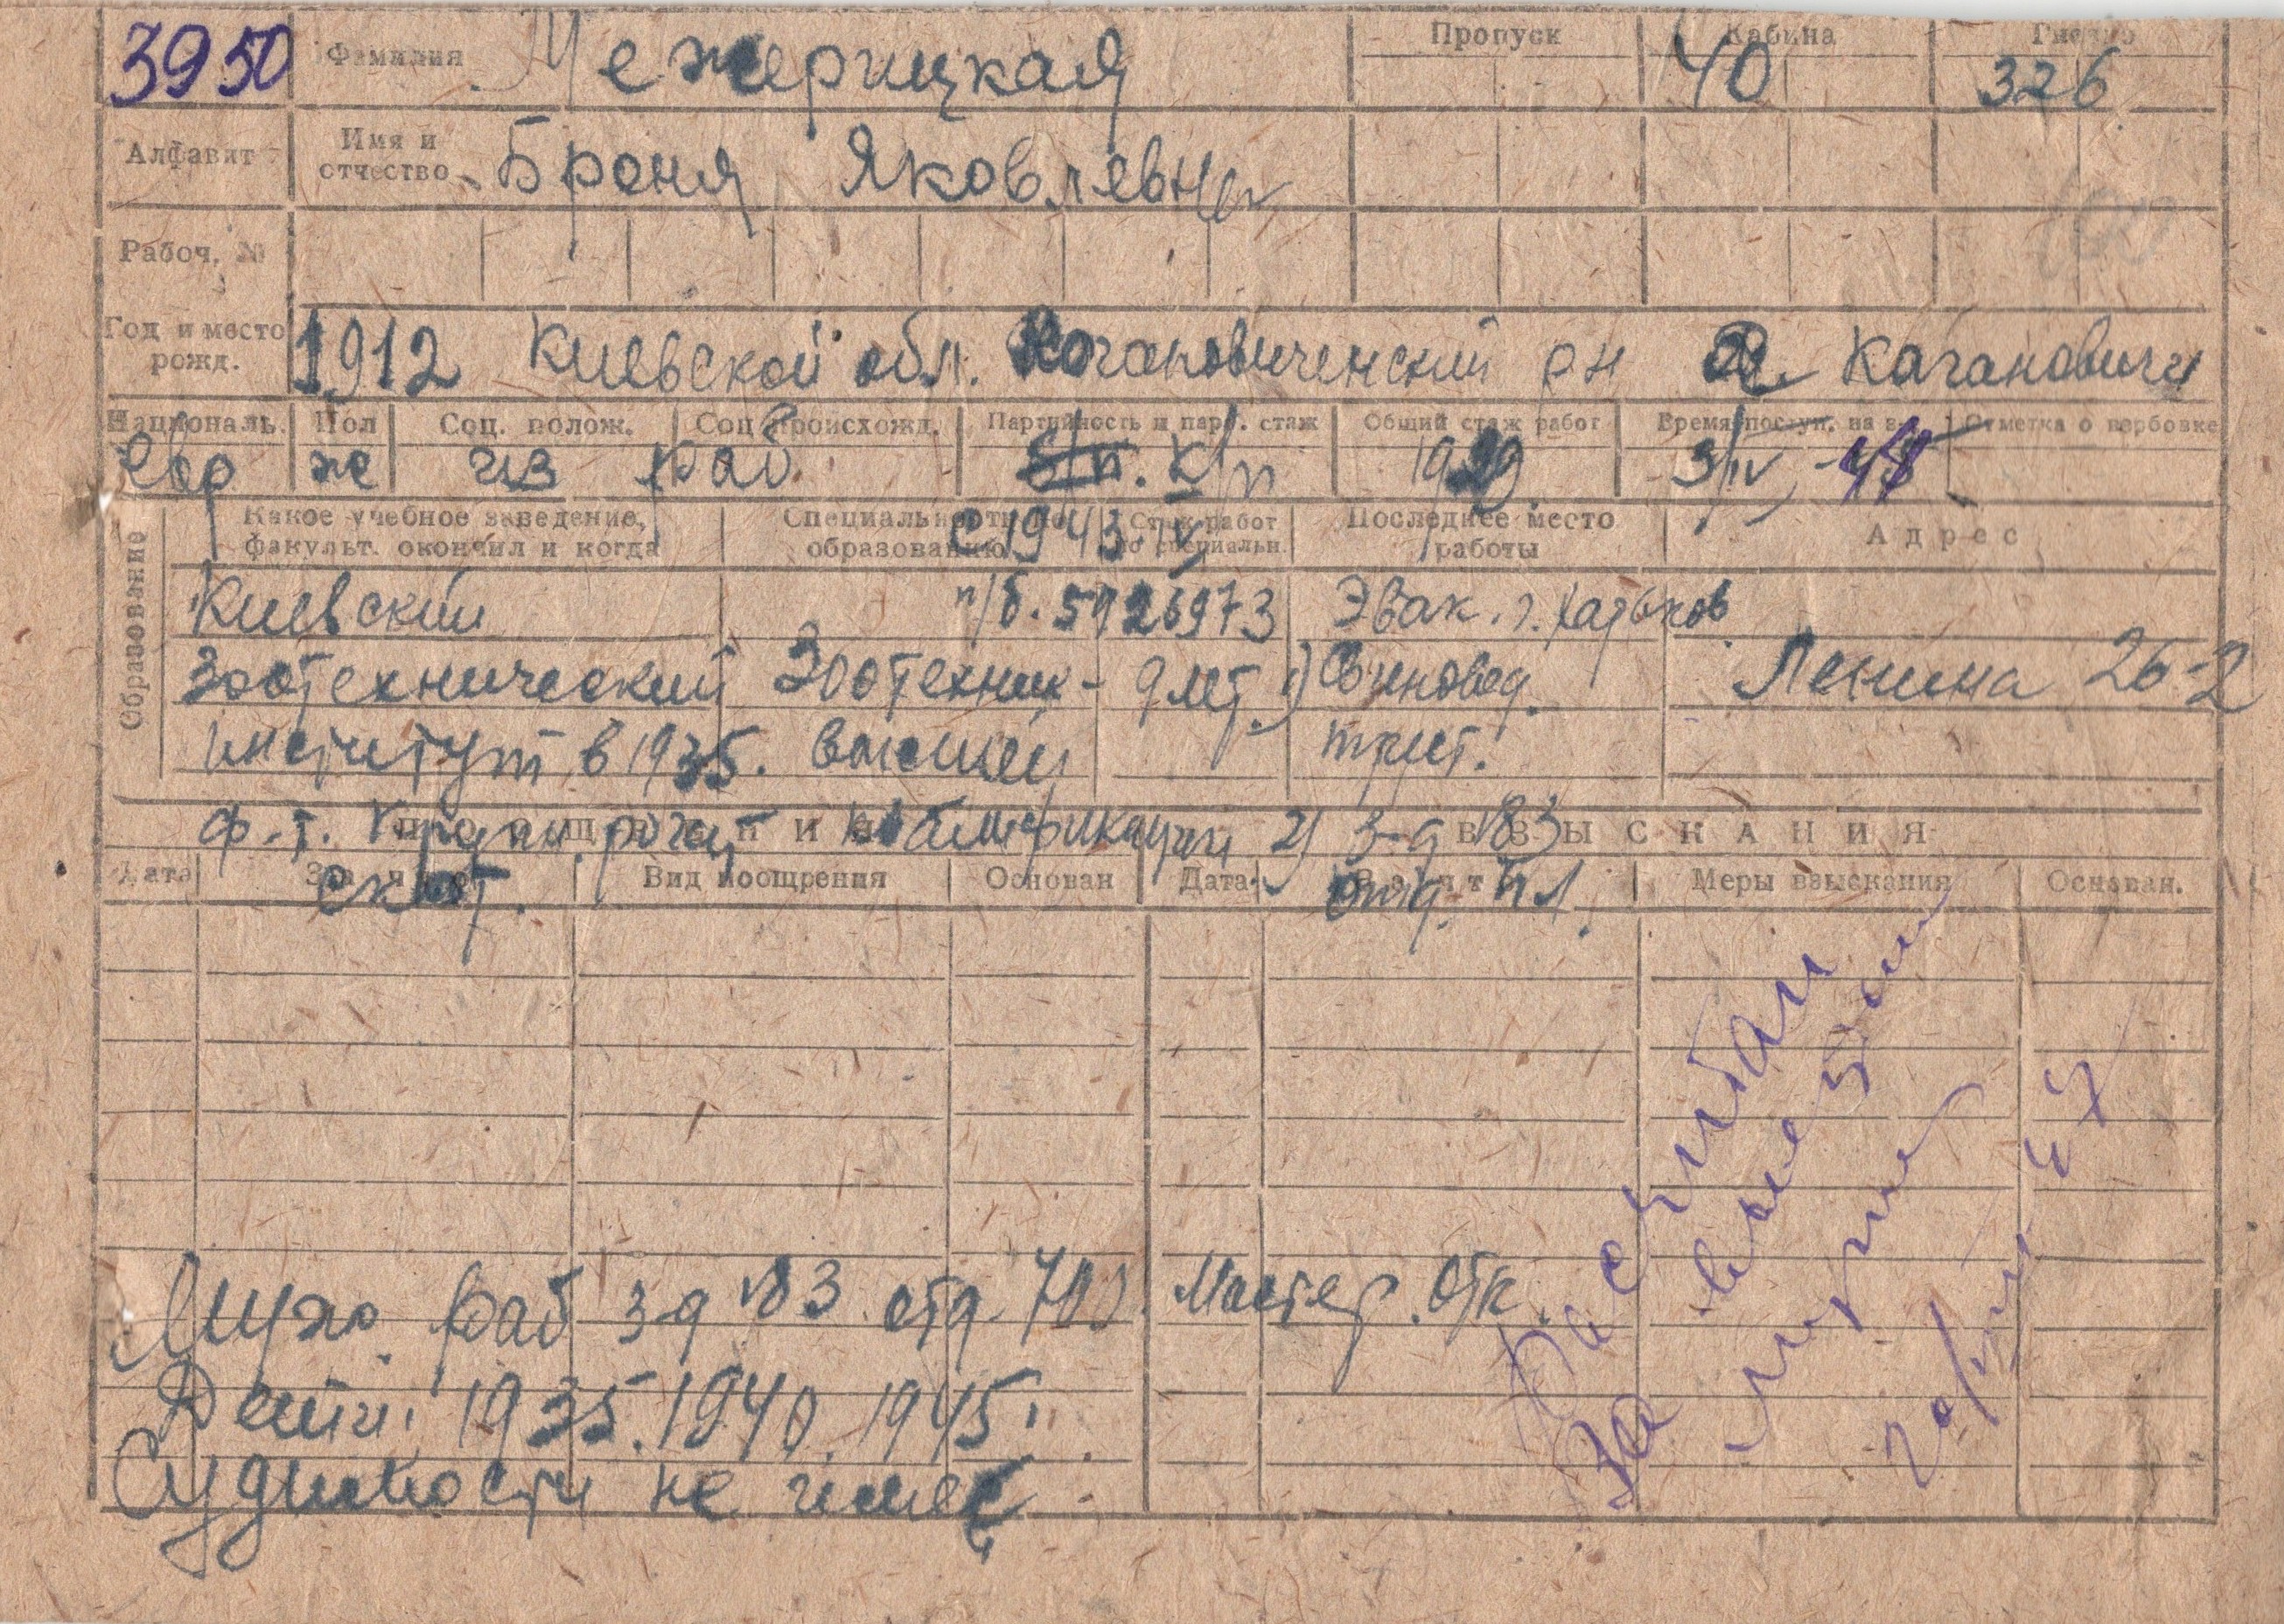 3950 Фамилия Межерицкая Пропуск Кабина 40 Гнездо 326
Алфавит Имя и отчество Броня Яковлевна
Рабоч. №
Год и место рожд. 1912 Киевской обл. Кагановиченский рн Кагановичи
Националь. Пол Соц. полож. Соц. происхожд. Партийность и парт. стаж Общий стаж работ Время поступ. на з-д Отметка о вербовке
Евр ж из раб б/п. К/п 1929 3/IV
Образование
Какое учебное заведение, факульт. окончил и когда Специальность по образованию Стаж работ по специальн. Последнее место работы Адрес
с 1943. IV
Киевский п/б. 5926973 Эвак. г. Харьков
Зоотехнический Зоотехник - 9 лет. 1) Свиновод. Ленина 26-2
институт в 1935. высшей трест.
ф-т. Крупн. рогат квалификации 2) 3-д №83
ПООЩРЕНИЯ ВЗЫСКАНИЯ
Дата За что Вид поощрения Основан Дата За что Меры взыскания Основан.
скот. отд.
Муж. Раб 3-д №83 отд. 700. Мастер. Отк.
Дети: 1935. 1940. 1945.
Судимости не имеет
Рассчитан
За
47